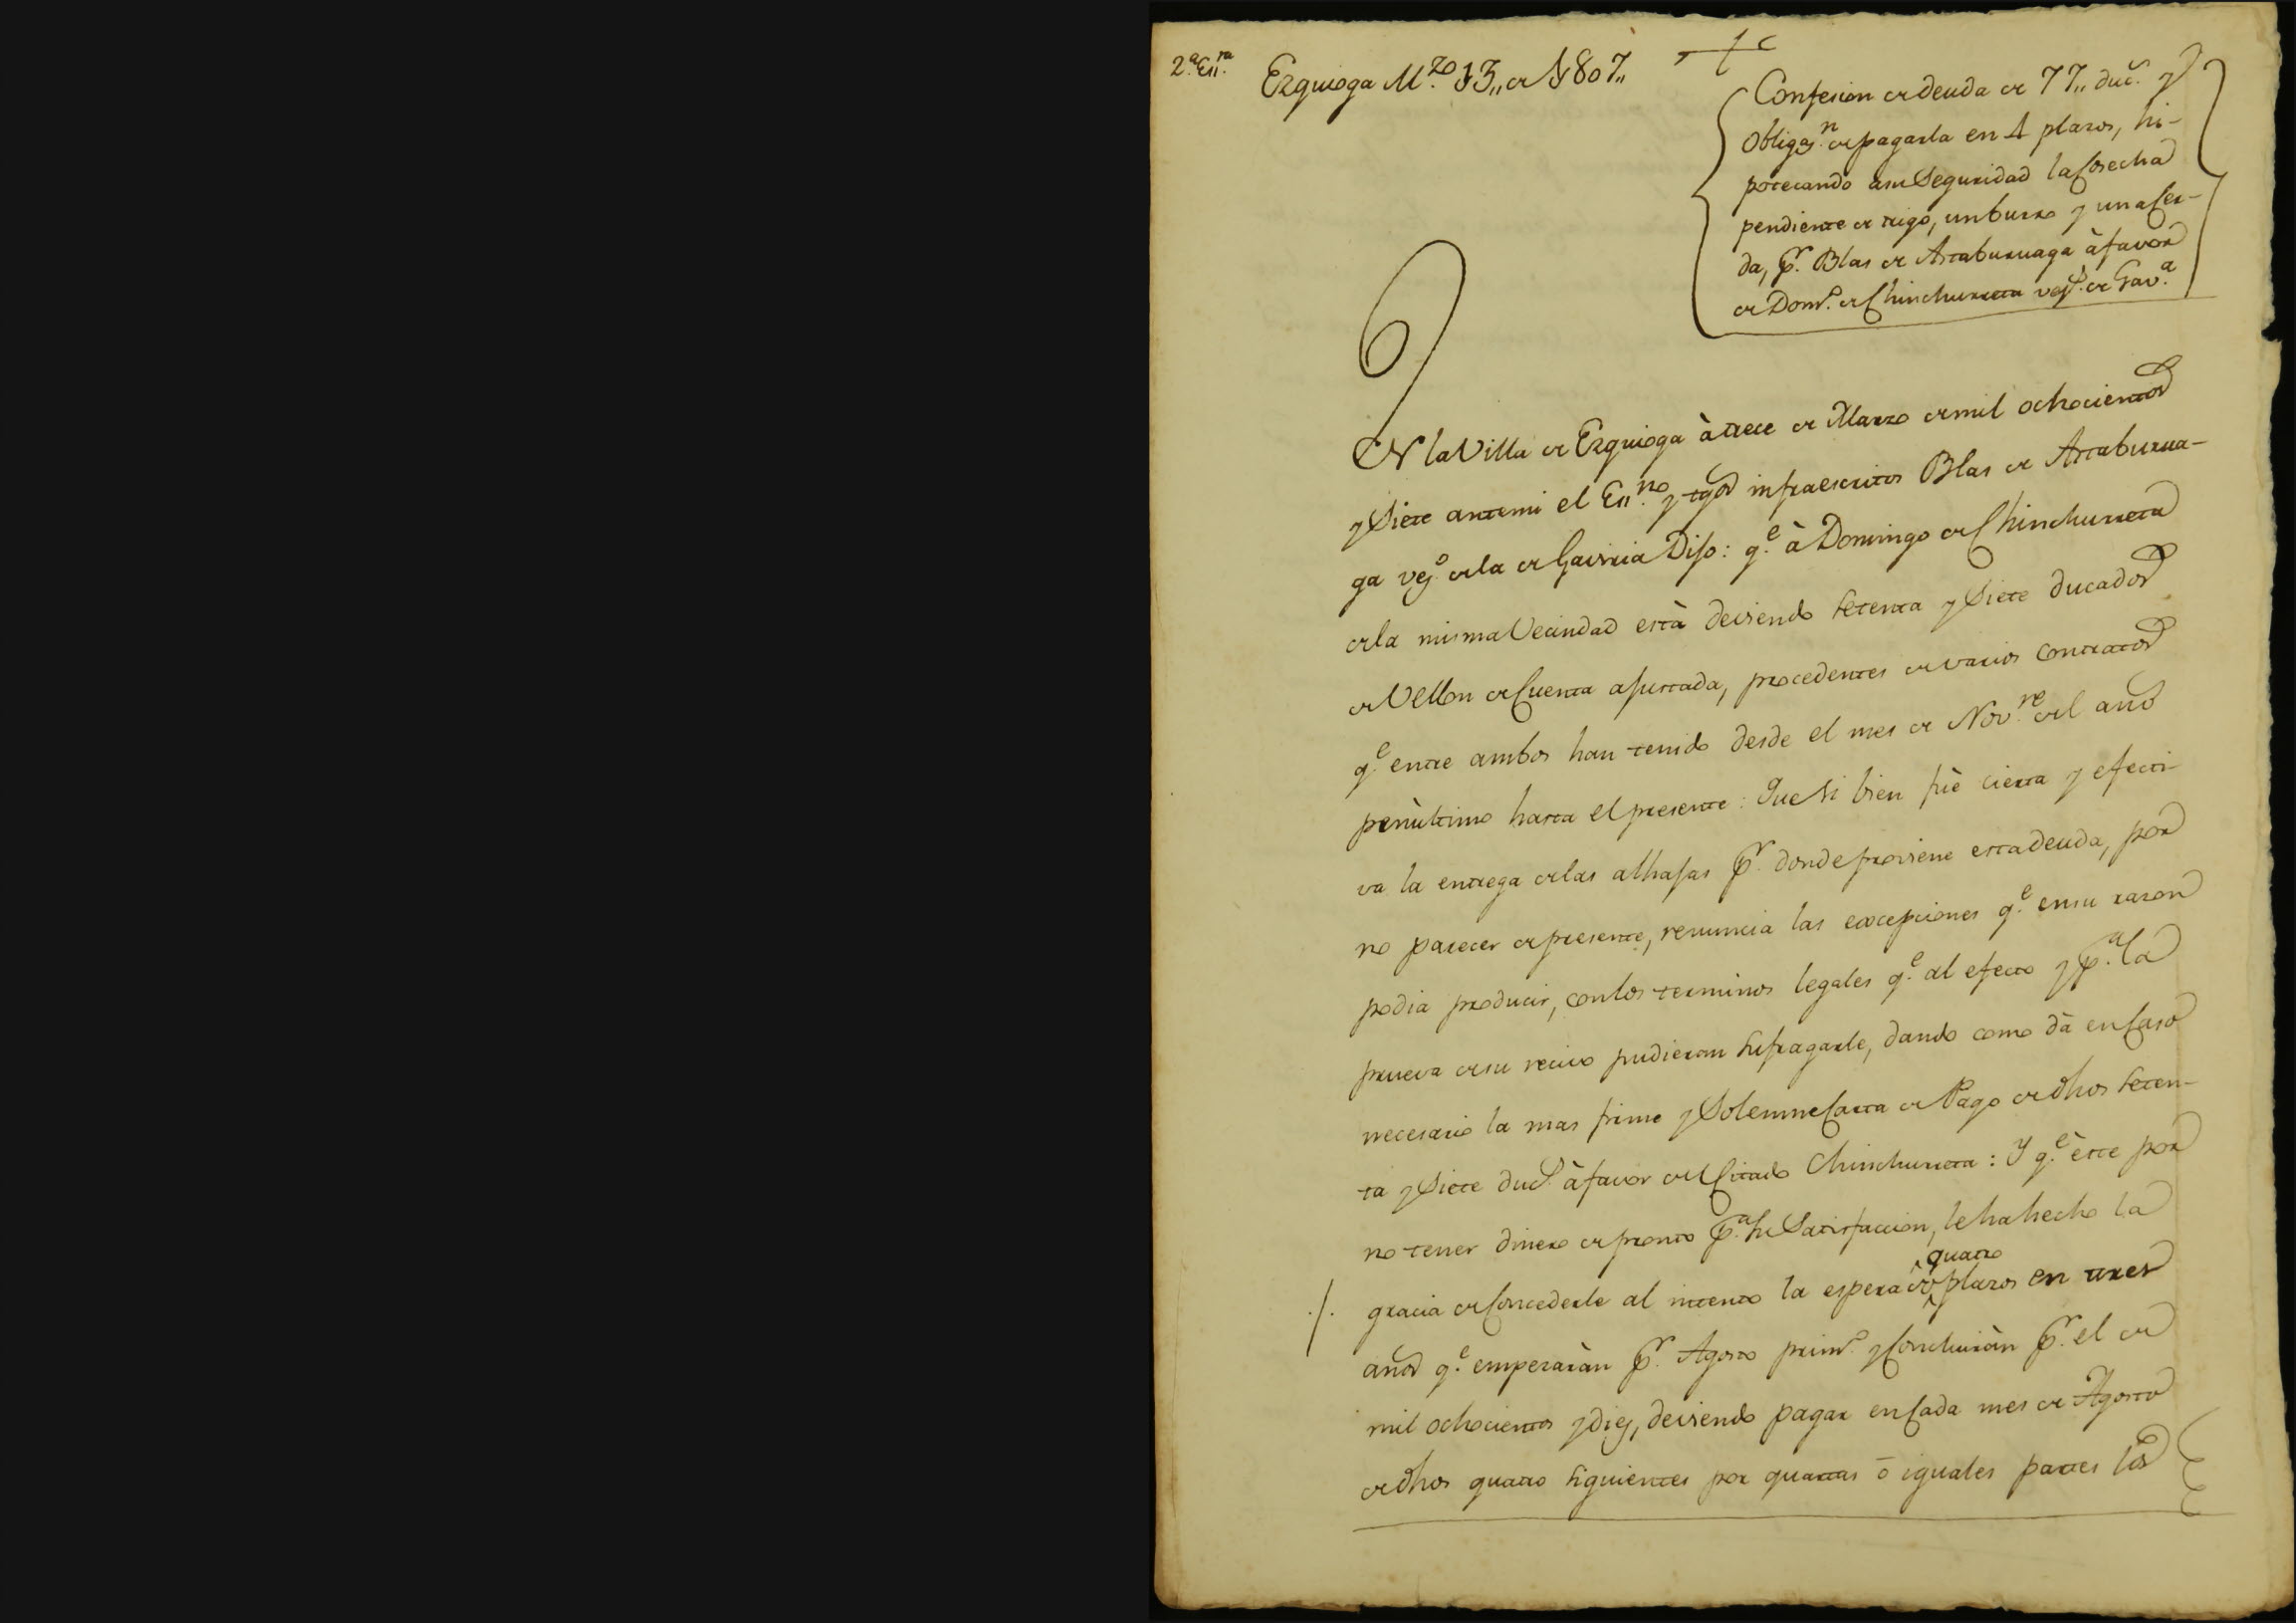 2.ª Es.ra
Ezquioga M.zo 13,, de 1807,,
Confesion de deuda de 77,, duc.s y
obligaz.n de pagarla en 4 plazos, hi-
potecando a su Seguridad la Cosecha
pendiente de trigo, un burro y una Cer-
da, p.r Blas de Artaburuaga à favor
de Dom.o de Chinchurreta vez.s de Gav.a
EN la Villa de Ezquioga à trece de Marzo de mil ochocientos
y Siete ante mi el Es.no y tgos infraescritos Blas de Artaburua-
ga vez.o de la de Gaviria Dijo: q.e à Domingo de Chinchurreta
de la misma Vecindad està deviendo setenta y Siete ducados
de Vellon de Cuenta ajustada, procedentes de varios Contratos
q.e entre ambos han tenido desde el mes de Nov.re del año
penùltimo hasta el presente: Que si bien fuè cierta y efecti-
va la entrega de las alhajas p.r donde proviene esta deuda, por
no parecer de presente, renuncia las excepciones q.e en su razon
podia producir, con los terminos legales q.e al efecto y p.a la
prueva de su recivo pudieron sufragarle, dando como dà en Caso
necesario la mas firme y Solemne Carta de Pago de dhos seten-
ta y Siete duc.s à favor del Citado Chinchurreta: Y q.e èste por
no tener dinero de pronto p.a su Satisfaccion, le ha hecho la
quatro
./. gracia de Concederle al intento la espera de plazos en tres
años q.e empezaràn p.r Agosto prim.o y Concluiràn p.r el de
mil ochocientos y diez, deviendo pagar en Cada mes de Agosto
de dhos quatro siguientes por quartas ò iguales partes los